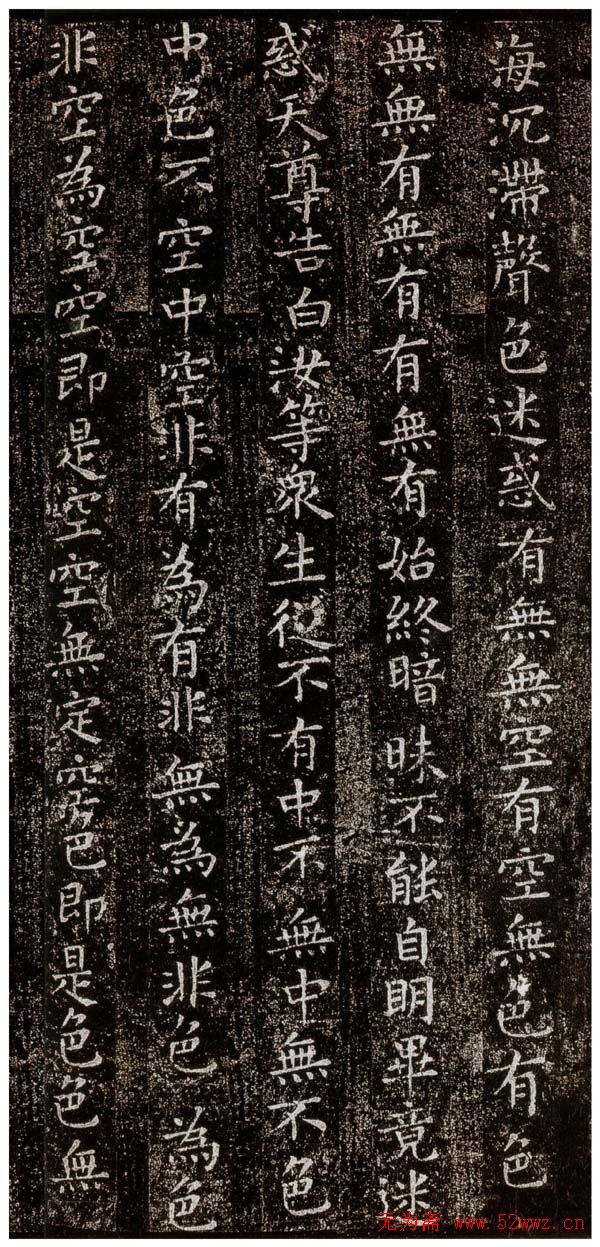 海沉滯聲色迷惑有無無空有空無色有色
無無有無有有無有始終暗昧不能自明畢竟迷
惑天尊告白汝等衆生從不有中不無中無不色
中色不空中空非有為有非無為無非色為色
非空為空空即是空空無定空色即是色色無
无为斋 www.52wwz.cn